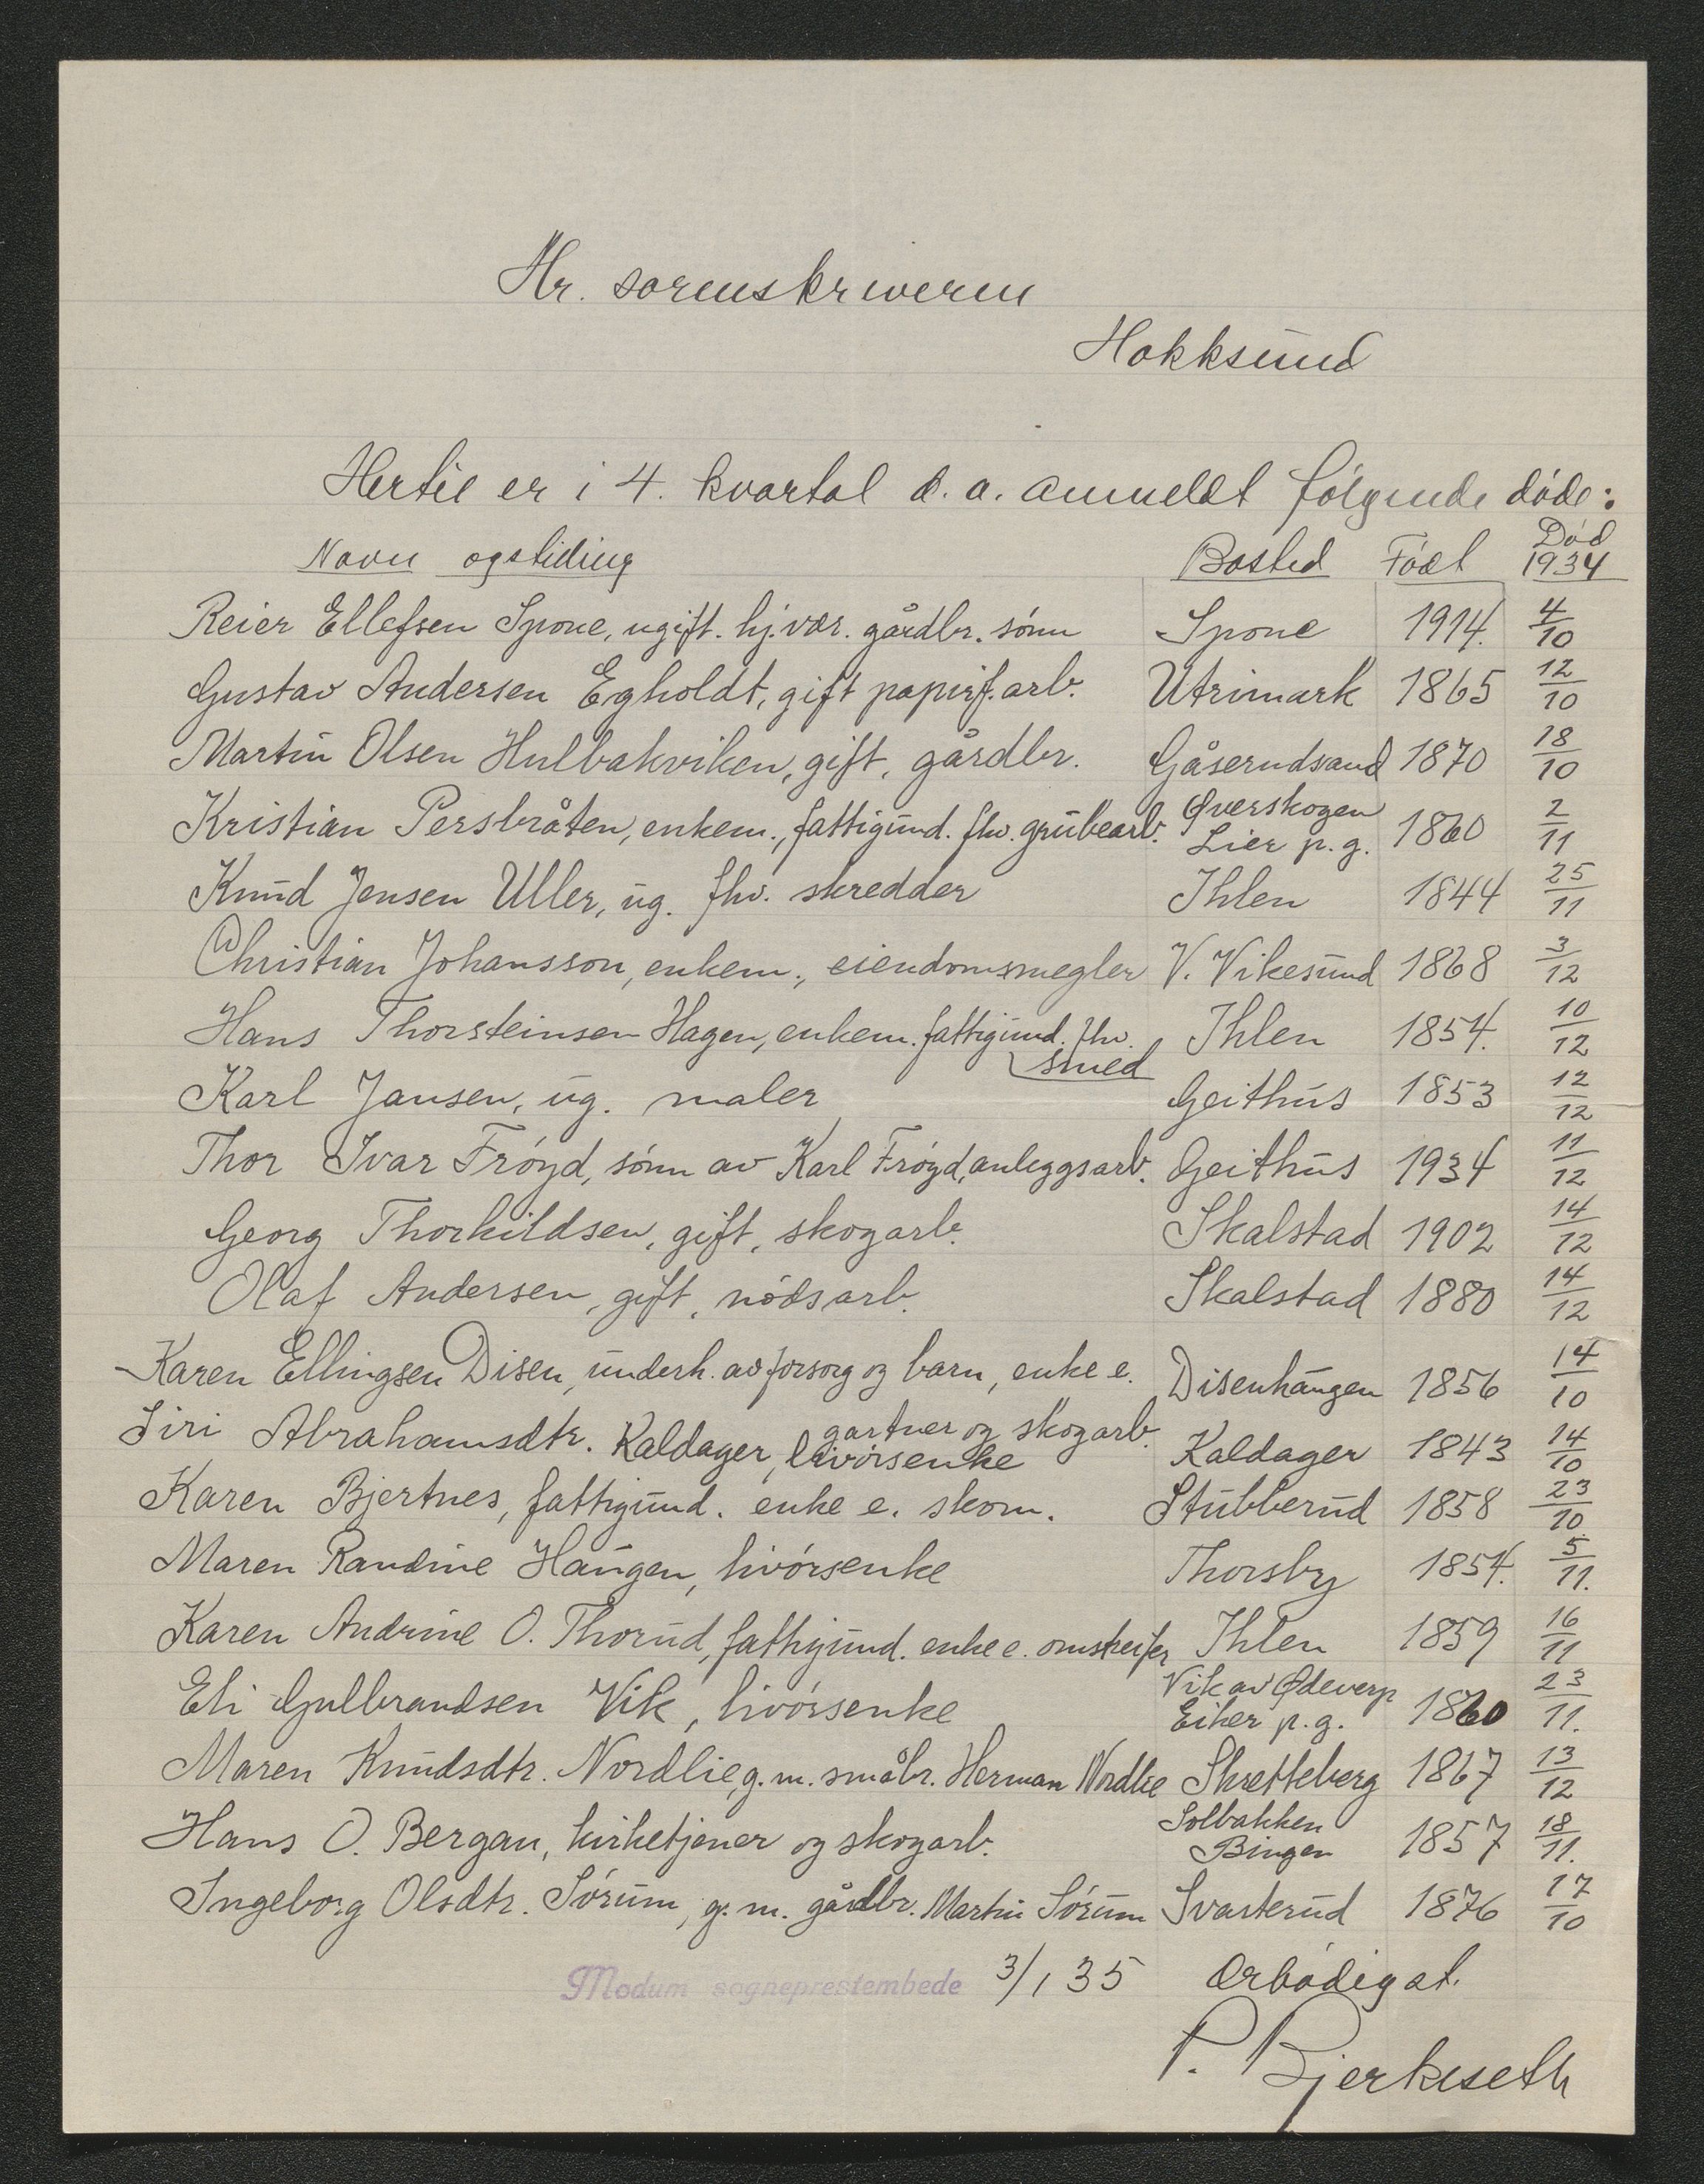 Hr. sorenskriveren
Hokksund
Hertil er i 4. kvartal d. a. anmeldt følgende døde:
Navn og stiding Bosted Født Død 1934
Reier Ellefsen Spone, ugift. hj. vær. gårdbr. sønn Spone 1914. 4/10
Gustav Andersen Egholdt, gift papirf. arb. Utrimark 1865 12/10
Martin Olsen Hulbakviken, gift, gårdbr. Gåserudsand 1870 18/10
Kristian Persbråten, enkem., fattigund. fhv. grubearb. Øverskogen Lier p. g. 1860 2/11
Knud Jensen Uller, ug. fhv. skredder Ihlen 1844 25/11
Christian Johansson, enkem., eiendomsmegler V. Vikesund 1868 3/12
Hans Thorsteinsen Hagen, enkem. fattigund. fhv. smed Ihlen 1854. 10/12
Karl Jansen, ug. maler Geithus 1853 12/12
Thor Ivar Frøyd, sønn av Karl Frøyd, anleggsarb. Geithus 1934 11/12
Georg Thorkildsen, gift, skogarb. Skalstad 1902 14/12
Olaf Andersen, gift, nødsarb. Skalstad 1880 14/12
Karen Ellingsen Disen, underh. av forsorg og barn, enke e. gartner og skogarb. Disenhaugen 1856 14/10
Siri Abrahamsdtr. Kaldager, livørsenke Kaldager 1843 14/10
Karen Bjertnes, fattigund. enke e. skom. Stubberud 1858 23/10.
Maren Randine Haugen, livørsenke Thorsby 1854. 5/11.
Karen Andrine O. Thorud, fattigund. enke e. Ihlen 1859 16/11
Eli Gulbrandsen Vik, livørsenke Vik av Ødeverp Eiker p. g. 1860 23/11.
Maren Knudsdtr. Nordlie, g. m. småbr. Herman Nordlie Skretteberg 1867 13/12
Hans O. Bergan, kirketjener og skogarb. Solbakken Bingen 1857 18/11.
Ingeborg Olsdtr. Sørum, g. m. gårdbr. Martin Sørum Svarterud 1876 17/10
Modum sogneprestembede 3/1 35 Ærbødigst.
P. Bjerkeseth